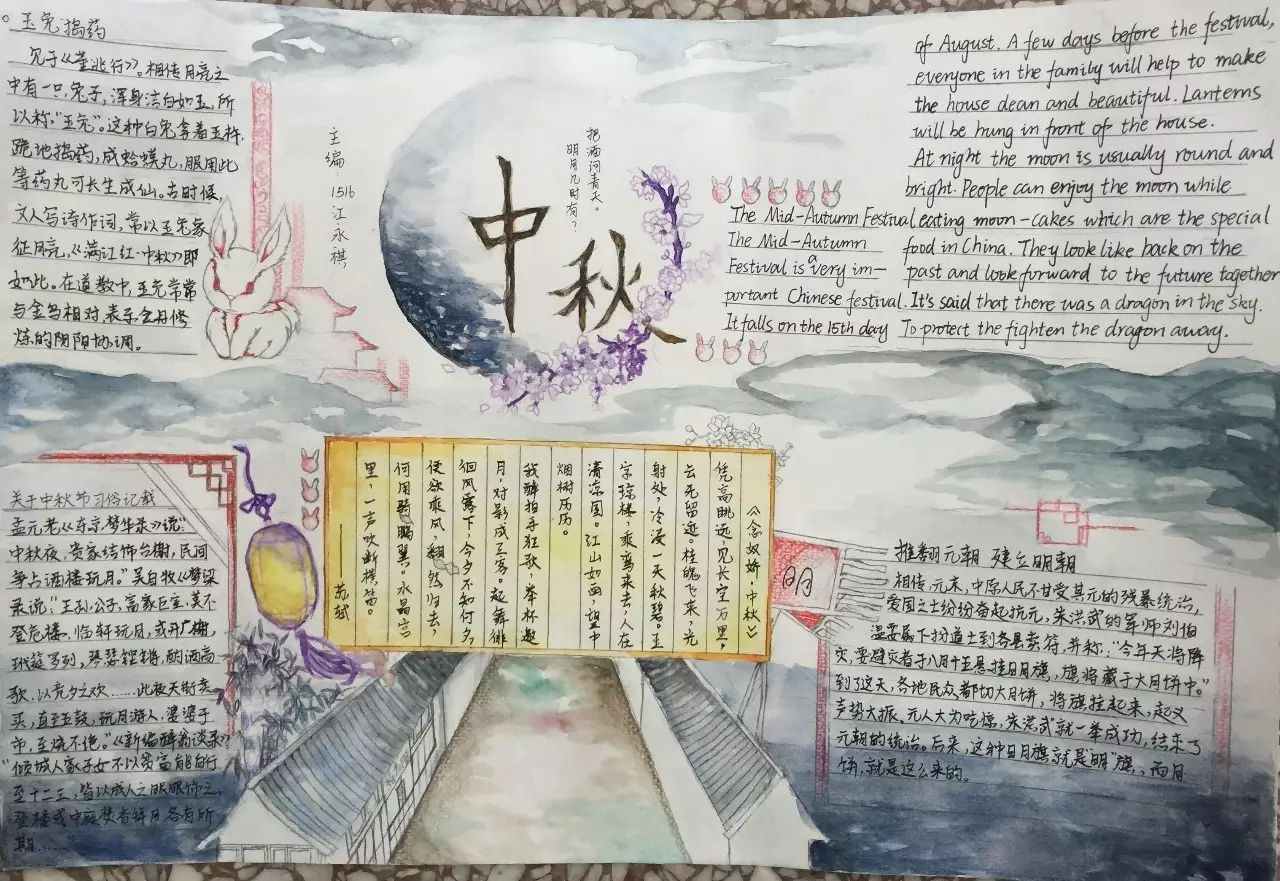 玉兔捣药
见于《董逃行》。相传月亮之
中有一只兔子，浑身洁白如玉，所
以称"玉兔"。这种白兔拿着玉杵，
跪地捣药，成蛤蟆丸，服用此
等药丸可长生成仙。古时候，
文人写诗作词，常以玉兔象
征月亮，《满江红·中秋》即
如此。在道教中，玉兔常常
与金乌相对，表示金丹修
炼的阴阳协调。
主编：1516江永棋
把酒问青天。
明月几时有？
中秋
The Mid-Autumn Festival
The Mid-Autumn
Festival is a very im-
portant Chinese festival.
It falls on the 15th day
of August. A few days before the festival,
everyone in the family will help to make
the house dean and beautiful. Lanterns
will be hung in front of the house.
At night the moon is usually round and
bright. People can enjoy the moon while
eating moon-cakes which are the special
food in China. They look like back on the
past and look forward to the future together
It's said that there was a dragon in the sky.
To protect the fighten the dragon away.
《念奴娇·中秋》
凭高眺远，见长空万里，
云无留迹。桂魄飞来，光
射处，冷浸一天秋碧。玉
宇琼楼，乘鸾来去，人在
清凉国。江山如画，望中
烟树历历。
我醉拍手狂歌，举杯邀
月，对影成三客。起舞徘
徊风露下，今夕不知何夕，
便欲乘风，翻然归去，
何用骑鹏翼。水晶宫
里，一声吹断横笛。
——苏轼
关于中秋节习俗记载
孟元老《东京梦华录》说："
中秋夜，贵家结饰台榭，民间
争占酒楼玩月。"吴自牧《梦梁
录说："王孙公子，富家巨室，莫不
登危楼，临轩玩月，或开广榭，
玳筵罗列，琴瑟铿锵，酌酒高
歌，以竟夕之欢……此夜天街卖
买，直至五鼓，玩月游人，婆婆于
市，至烧不绝。"《新编醉翁谈录》：
"倾城人家子女不以贫富能自行
至十二三，皆以成人之服服饰之，
登楼或中庭焚香拜月，各有所
期……"
明
推翻元朝 建立明朝
相传，元末，中原人民不甘受其元的残暴统治，
爱国之士纷纷奋起抗元，朱洪武的军师刘伯
温要属下扮道士到各县卖符，并称："今年天将降
灾，要避灾者于八月十五悬挂日月旗，旗将藏于大月饼中。"
到了这天，各地民众都切大月饼，将旗挂起来，起义
声势大振，元人大为吃惊，朱洪武就一举成功，结束了
元朝的统治。后来，这种日月旗，就是"明"旗，而月
饼，就是这么来的。